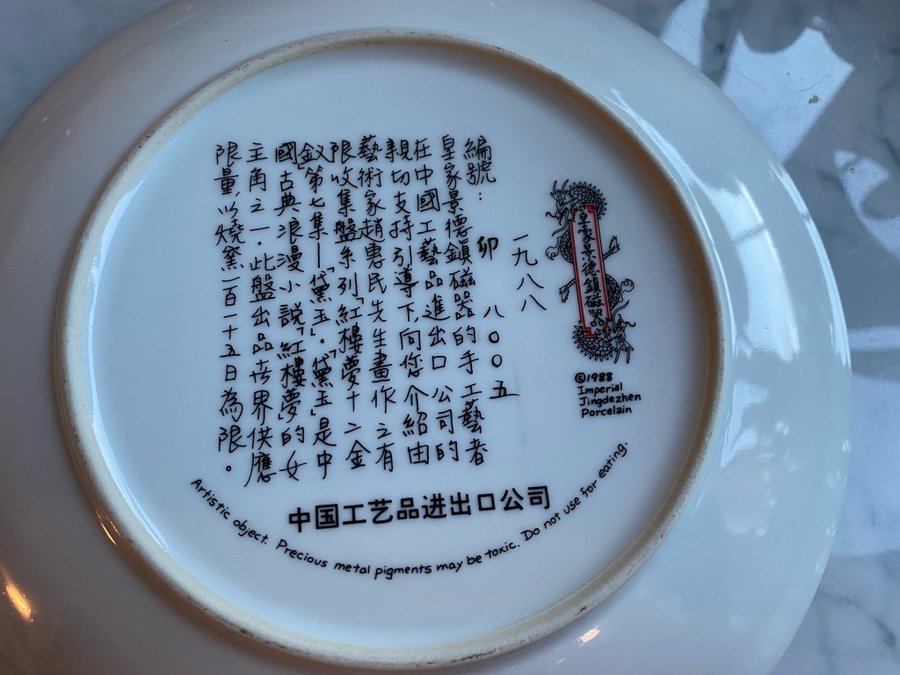 皇家景德鎮磁器
©1988
Imperial
Jingdezhen
Porcelain
一九八八
編號：卯 八〇〇五
皇家景德鎮磁器的手工藝者
在中國工藝品進出口公司的
親切支持引導下,向您介紹由
藝術家趙惠民先生畫作之有
限收集盤系列「紅樓夢十二金
釵」第七集—「黛玉」.「黛玉」是中
國古典浪漫小說「紅樓夢」的女
主角之一.此盤出品世界供應
限量,以燒窯一百一十五日為限。
中国工艺品进出口公司
Artistic object. Precious metal pigments may be toxic. Do not use for eating.